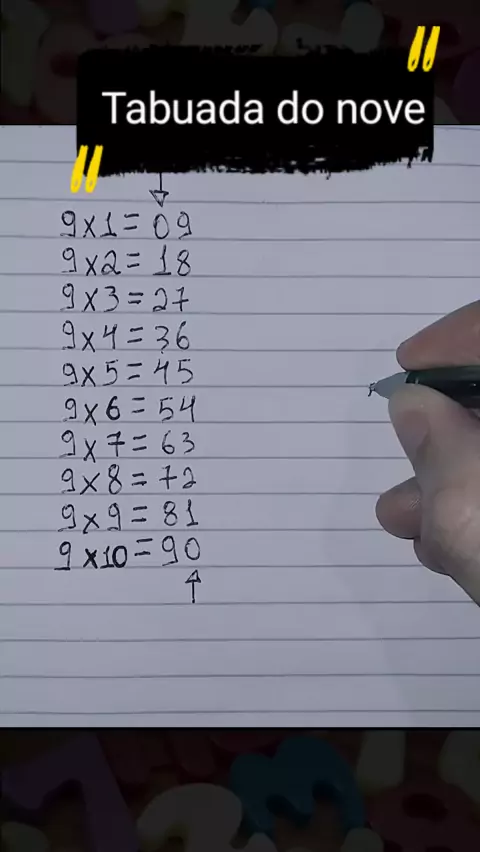 Tabuada do nove
9x1=09
9x2=18
9x3=27
9x4=36
9x5=45
9x6=54
9x7=63
9x8=72
9x9=81
9x10=90